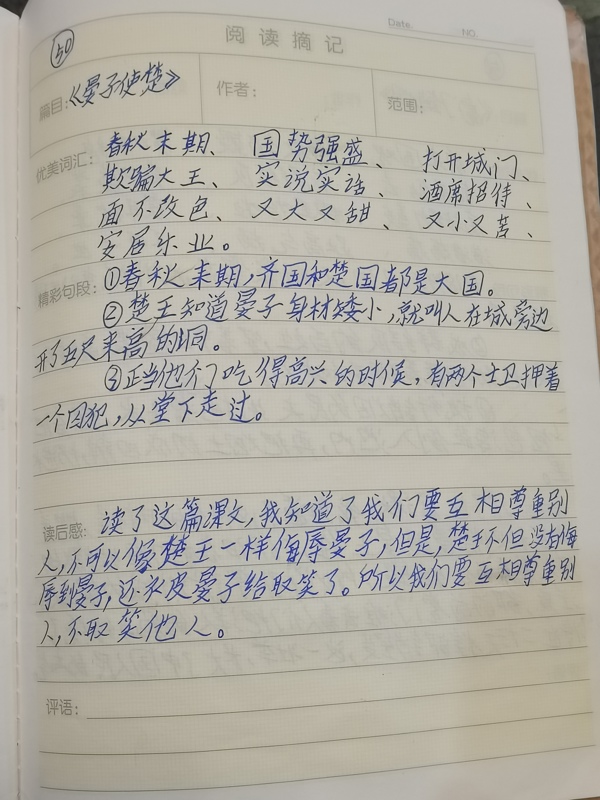 Date. NO.
50
阅读摘记
篇目:《晏子使楚》 作者: 范围:
优美词汇: 春秋末期、国势强盛、打开城门、
欺骗大王、实说实话、酒席招待、
面不改色、又大又甜、又小又苦、
安居乐业。
精彩句段: ①春秋末期,齐国和楚国都是大国。
②楚王知道晏子身材矮小,就叫人在城旁边
开了五尺来高的洞。
③正当他们吃得高兴的时候,有两个士卫押着
一个囚犯,从堂下走过。
读后感: 读了这篇课文,我知道了我们要互相尊重别
人,不可以像楚王一样侮辱晏子,但是,楚王不但没有侮
辱到晏子,还被晏子给取笑了。所以我们要互相尊重别
人,不取笑他人。
评语: